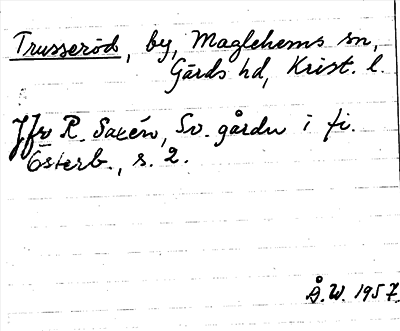 Trusseröd, by, Maglehems sn,
Gärds hd, Krist. l.
Jfr R. Saxén, Sv. gårdn i fi.
Österb., s. 2.
Å.W. 1957.